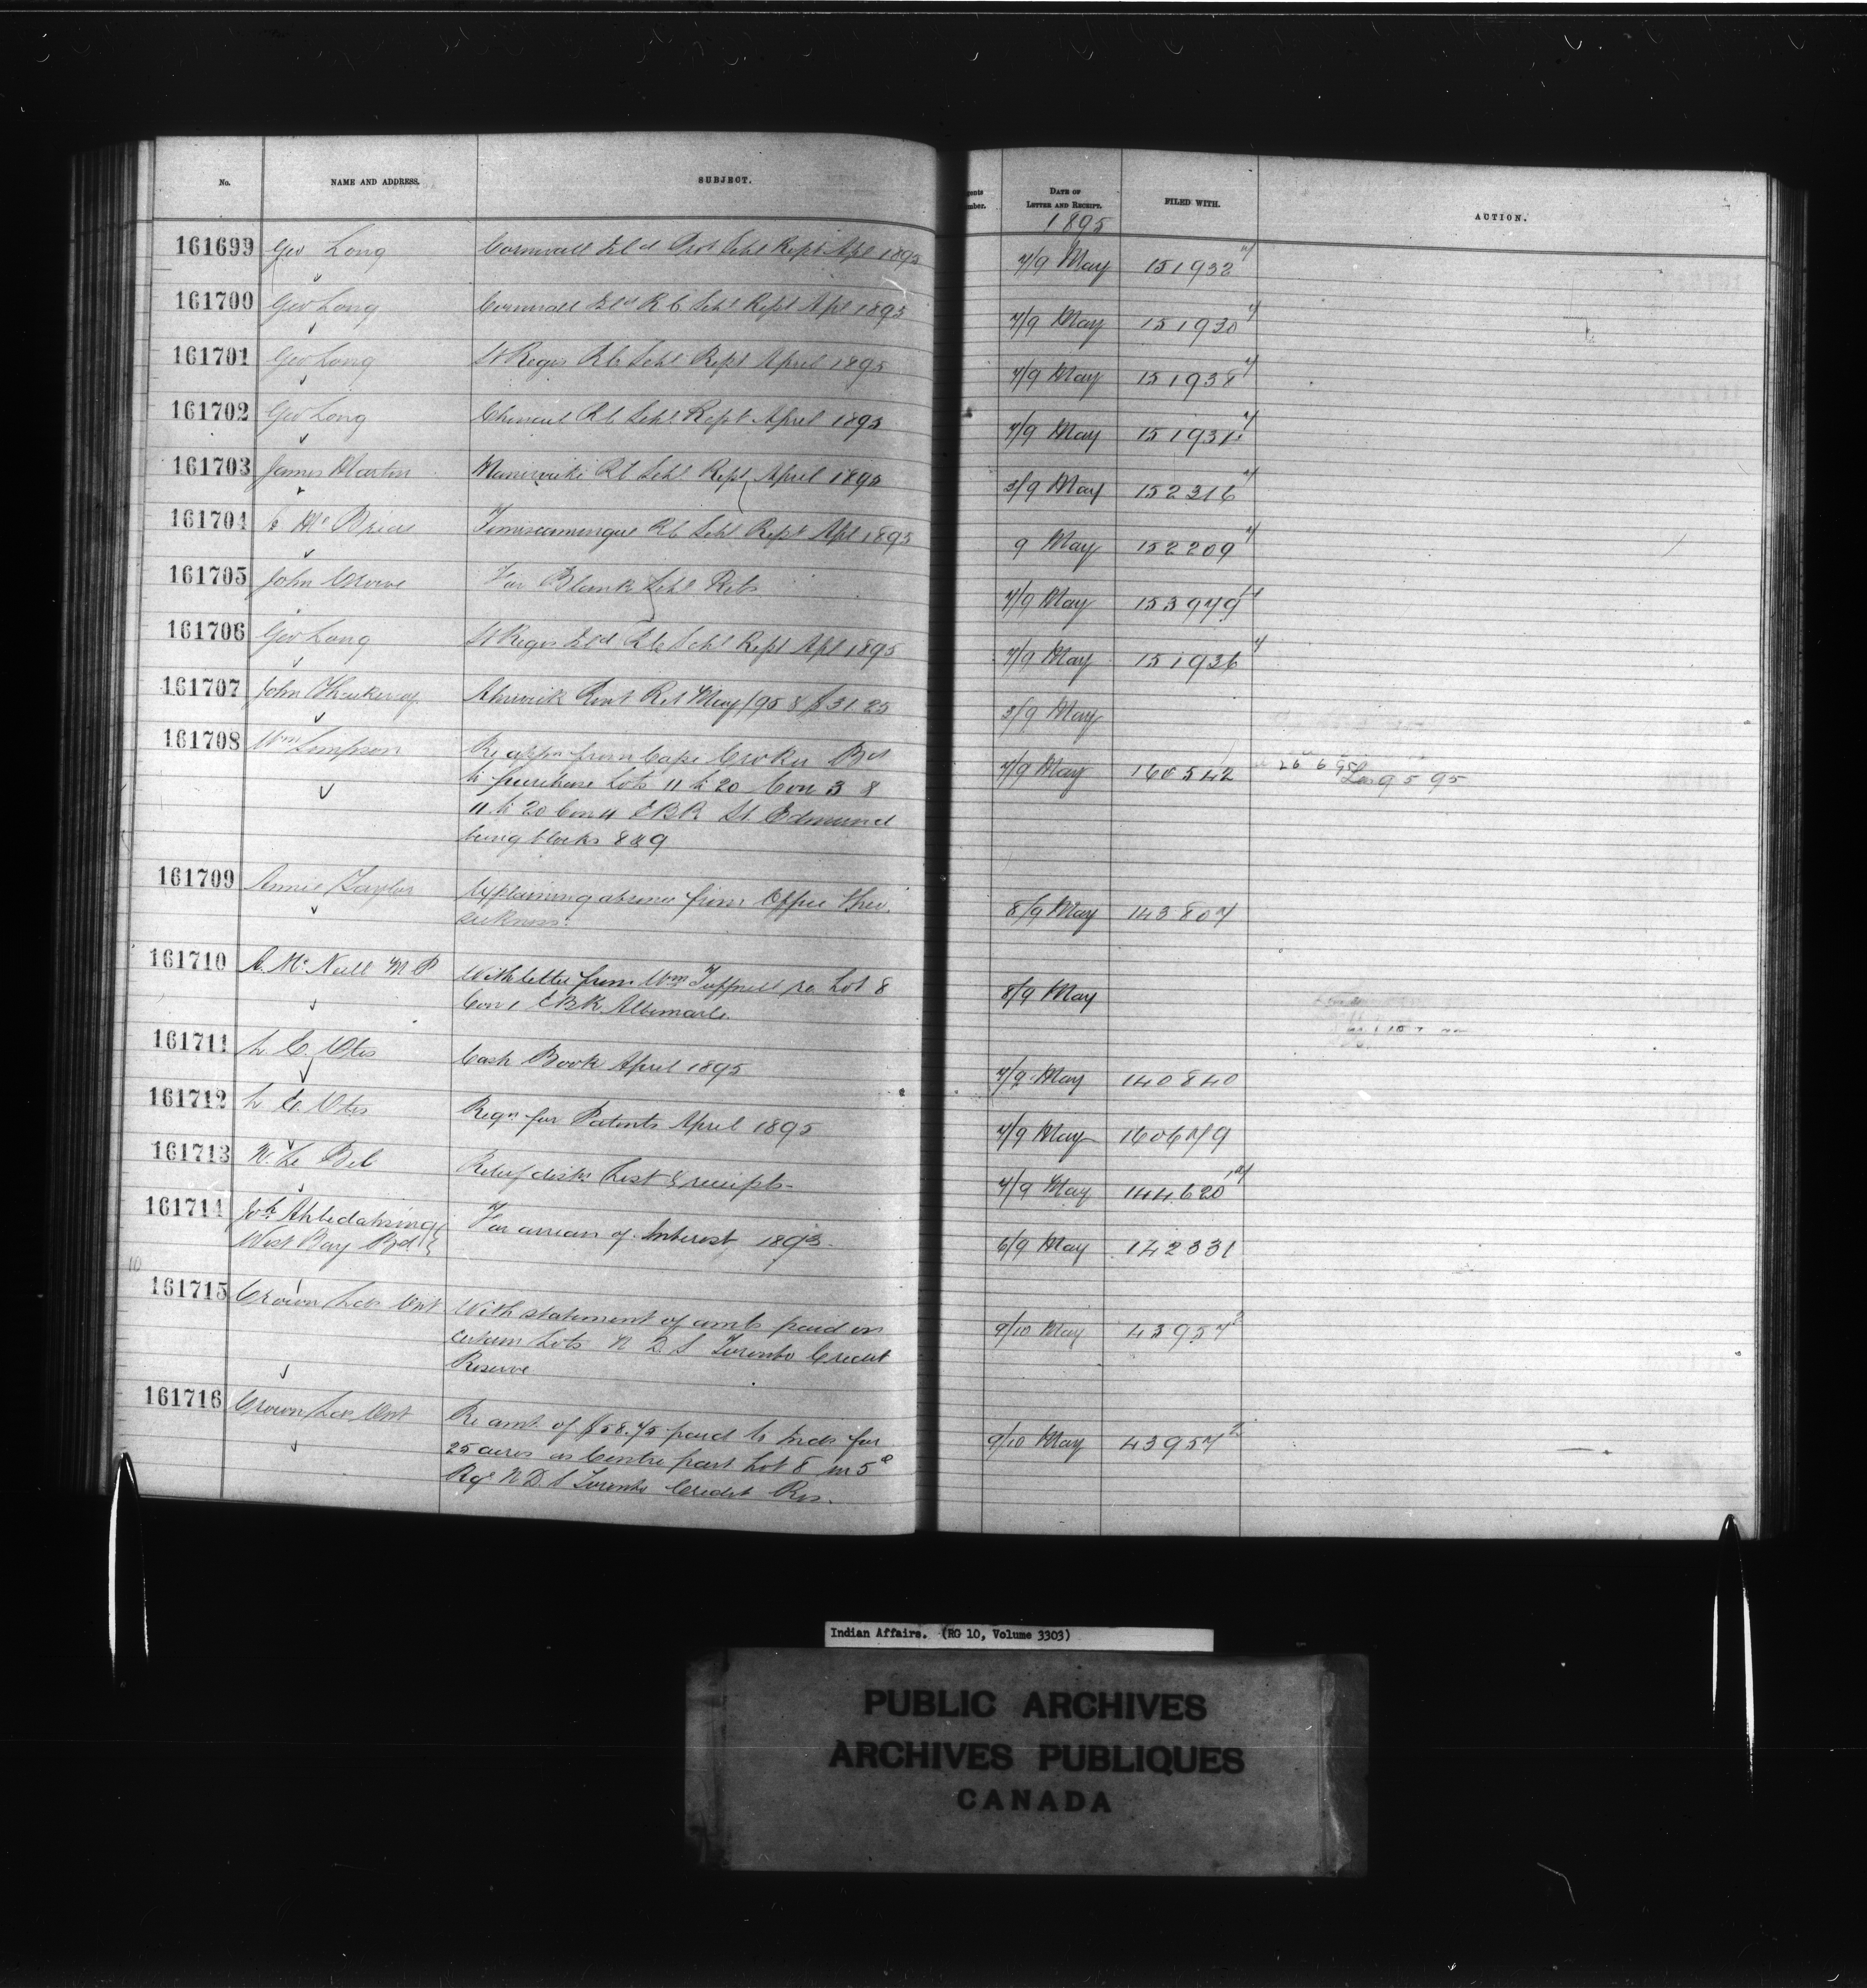 No. NAME AND ADDRESS. SUBJECT. DATE OF LETTER AND RECEIPT. FILED WITH. ACTION.
1895
161699 Geo Long Cornwall Isld Prot Schl Rept Apl 1895 7/9 May 151932
161700 Geo Long Cornwall Isld R C Schl Rept Apl 1895 7/9 May 151930
161701 Geo Long St Regis R C Schl Rept April 1895 7/9 May 151938
161702 Geo Long Chenail R C Schl Rept April 1895 7/9 May 151931
161703 James Martin Maniwaki R C Schl Rept April 1895 3/9 May 152316
161704 Temiscamingue R C Schl Rept Apl 1895 9 May 152209
161705 John Crowe For Blank Schl Rets 7/9 May 153979
161706 Geo Long St Regis Isld R C Schl Rept Apl 1895 7/9 May 151936
161707 John Thackeray Alnwick Rent Ret May/95 & $31.25 3/9 May
161708 Wm Simpson Re appn from Cape Croker Bd 7/9 May 160542 26 6 95 9 5 95
to purchase Lots 11 to 20 Con 3 &
11 to 20 Con 4 E B R St Edmund
being blocks 8 & 9
161709 Annie Taylor Explaining absence from Office thro 8/9 May 143807
sickness.
161710 A. McNeill M P With letter from Wm Tuffnell re Lot 8 8/9 May
Con 1 E B R Albemarle.
161711 L. E. Otis Cash Book April 1895 7/9 May 140840
161712 L E. Otis Reqn for Patents April 1895 7/9 May 160679
161713 N. Le Bel Relief distn List & receipts 7/9 May 144620
161714 Jos Ahbedahsing For arrears of Interest 1893 6/9 May 142331
West Bay Bd
161715 Crown Lds Ont With statement of amts paid on 9/10 May 43957 2
certain Lots N D S Toronto Credit
Reserve
161716 Crown Lds Ont Re amt of $58.75 paid to Inds for 9/10 May 43957 2
25 acres as Centre part Lot 8 in 5
Rge N D S Toronto Credit Res.
Indian Affairs. (RG 10, Volume 3303)
PUBLIC ARCHIVES
ARCHIVES PUBLIQUES
CANADA